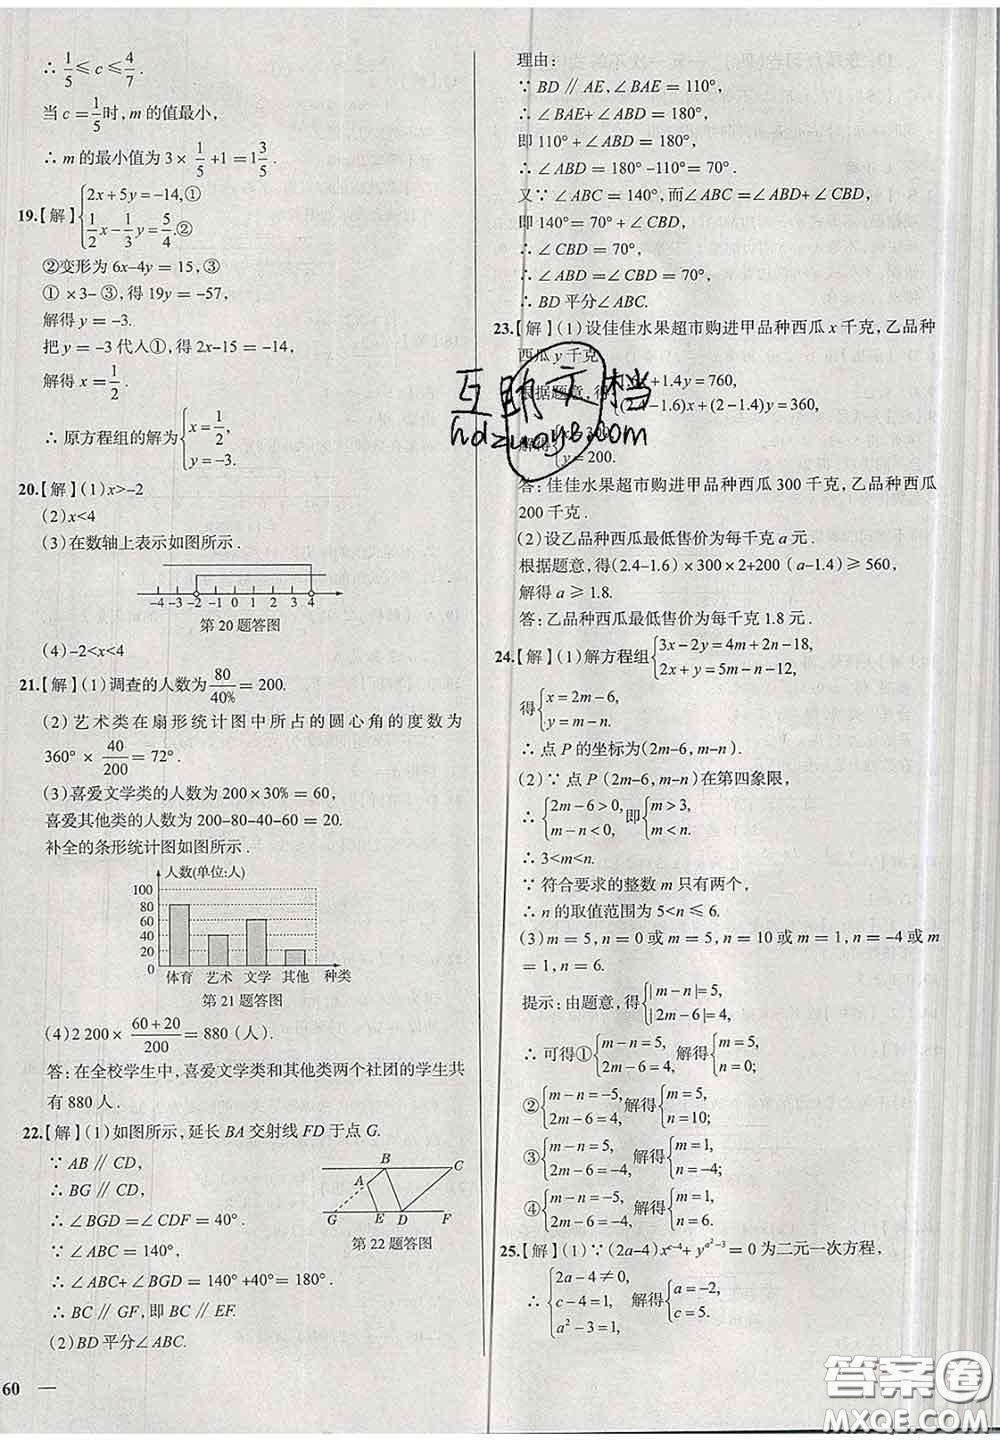 ∴ 1/5 ≤ c ≤ 4/7 .
当 c = 1/5 时, m 的值最小,
∴ m 的最小值为 3 × 1/5 +1 = 1 3/5 .
19.【解】{2x+5y=-14,①
1/2 x- 1/3 y= 5/4 .②
②变形为 6x-4y = 15, ③
① ×3- ③, 得 19y = -57,
解得 y = -3.
把 y = -3 代人①, 得 2x-15 = -14,
解得 x = 1/2 .
∴ 原方程组的解为{x= 1/2,
y=-3.
20.【解】(1)x>-2
(2)x<4
(3)在数轴上表示如图所示 .
-4 -3 -2 -1 0 1 2 3 4
第 20 题答图
(4)-2<x<4
21.【解】(1)调查的人数为 80/40% = 200.
(2) 艺术类在扇形统计图中所占的圆心角的度数为
360° × 40/200 = 72° .
(3)喜爱文学类的人数为 200×30% = 60,
喜爱其他类的人数为 200-80-40-60 = 20.
补全的条形统计图如图所示 .
人数(单位:人)
100
80
60
40
20
0
体育 艺术 文学 其他 种类
第 21 题答图
(4)2 200× (60+20)/200 = 880 (人).
答: 在全校学生中, 喜爱文学类和其他类两个社团的学生共
有 880 人 .
22.【解】(1)如图所示, 延长 BA 交射线 FD 于点 G.
∵ AB ∥ CD,
∴ BG ∥ CD,
∴ ∠BGD=∠CDF= 40° .
∵ ∠ABC= 140°,
∴ ∠ABC+ ∠BGD = 140° +40° = 180° .
∴ BC ∥ GF, 即 BC ∥ EF.
(2)BD 平分∠ABC.
B C
A
G E D F
第 22 题答图
60
理由:
∵ BD ∥ AE, ∠BAE= 110°,
∴ ∠BAE+ ∠ABD = 180°,
即 110° + ∠ABD = 180°,
∴ ∠ABD = 180° -110° = 70° .
又∵ ∠ABC= 140°, 而∠ABC=∠ABD+ ∠CBD,
即 140°= 70° +∠CBD,
∴ ∠CBD = 70°,
∴ ∠ABD =∠CBD = 70°,
∴ BD 平分∠ABC.
23.【解】(1)设佳佳水果超市购进甲品种西瓜 x 千克, 乙品种
西瓜 y 千克
根据题意, 得{1.6x+1.4y=760,
(2.4-1.6)x+(2-1.4)y=360,
解得{x=300,
y=200.
答: 佳佳水果超市购进甲品种西瓜 300 千克, 乙品种西瓜
200 千克 .
(2)设乙品种西瓜最低售价为每千克 a 元 .
根据题意, 得(2.4-1.6) ×300×2+200 (a-1.4) ≥ 560,
解得 a ≥ 1.8.
答: 乙品种西瓜最低售价为每千克 1.8 元 .
24.【解】(1)解方程组{3x-2y=4m+2n-18,
2x+y=5m-n-12,
得{x=2m-6,
y=m-n.
∴ 点 P 的坐标为(2m-6, m-n).
(2)∵ 点 P (2m-6, m-n)在第四象限,
∴ {2m-6>0,
m-n<0, 即{m>3,
m<n.
∴ 3<m<n.
∵ 符合要求的整数 m 只有两个,
∴ n 的取值范围为 5<n ≤ 6.
(3)m = 5, n = 0 或 m = 5, n = 10 或 m = 1, n = -3 或 m
= 1, n = 5.
提示: 由题意, 得{|m-n|=5,
|2m-6|=4,
∴ 可得①{m-n=5,
2m-6=4, 解得{m=5,
n=0;
②{m-n=-5,
2m-6=4, 解得{m=5,
n=10;
③{m-n=5,
2m-6=-4, 解得{m=1,
n=-4;
④{m-n=-5,
2m-6=-4, 解得{m=1,
n=6.
25.【解】(1)∵(2a-4)x^(c-4)+ y^(a²-3) = 0 为二元一次方程,
∴ {2a-4≠0,
c-4=1,
a²-3=1, 解得{a=-2,
c=5.
互助文档
hdzuoye.com
答案圈
MXQE.COM